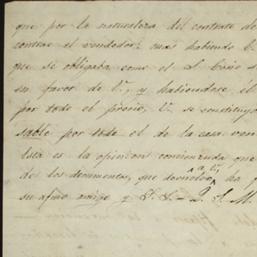 que por la naturaleza del contrato de
contrae el vendedor: mas habiendo V.
que se obligaba como el S. Cano
en favor de V., y habiendose el
por todo el precio, V. se constituyo
sable por todo el de la casa ven
Esta es la opinion concienzuda que
de los documentos, que devuelvo a V., ha
su afmo amigo y S. S. Q. S. M.